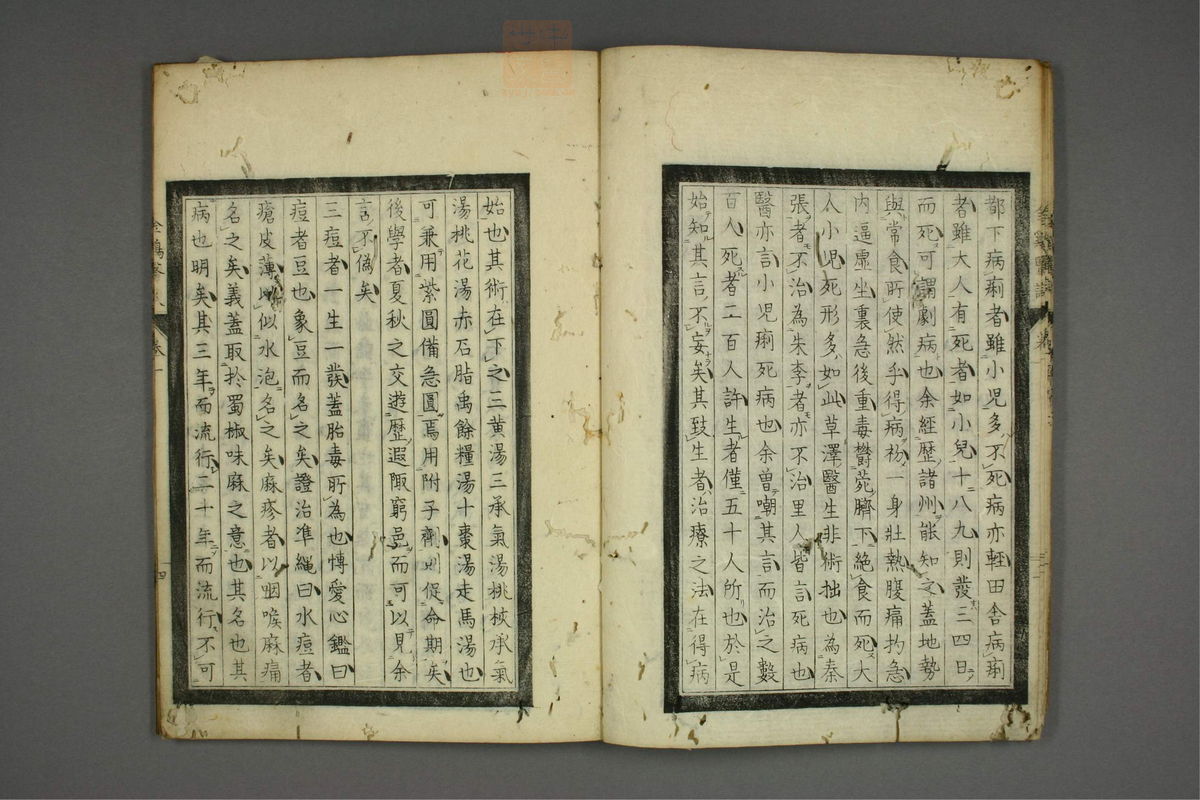 都下病痢者雖小児多不死病亦輕田舎病痢
者雖大人有死者如小兒十八九則發三四日
而死可謂劇病也余經歷諸州能知之蓋地勢
與常食所使然乎得病初一身壯熱腹痛灼急
内逼虚坐裏急後重毒欝苑臍下絶食而死大
人小児死形多如此草澤醫生非術拙也為秦
張者不治為朱李者亦不治里人皆言死病也
醫亦言小児痢死病也余曽嘲其言而治之數
百人死者二百人許生者僅五十人所也於是
始知其言不妄矣其致生者治療之法在得病
始也其術在下之三黄湯三承氣湯桃核承氣
湯桃花湯赤石脂禹餘糧湯十棗湯走馬湯也
可兼用紫圓備急圓焉用附子劑則促命期矣
後學者夏秋之交遊歷遐陬窮邑而可以見余
言不偽矣
三痘者一生一發蓋胎毒所為也愽愛心鑑曰
痘者豆也象豆而名之矣證治準繩曰水痘者
瘡皮薄似水泡名之矣麻疹者以咽喉麻痛
名之矣義蓋取於蜀椒味麻之意也其名也其
病也明矣其三年而流行二十年而流行不可